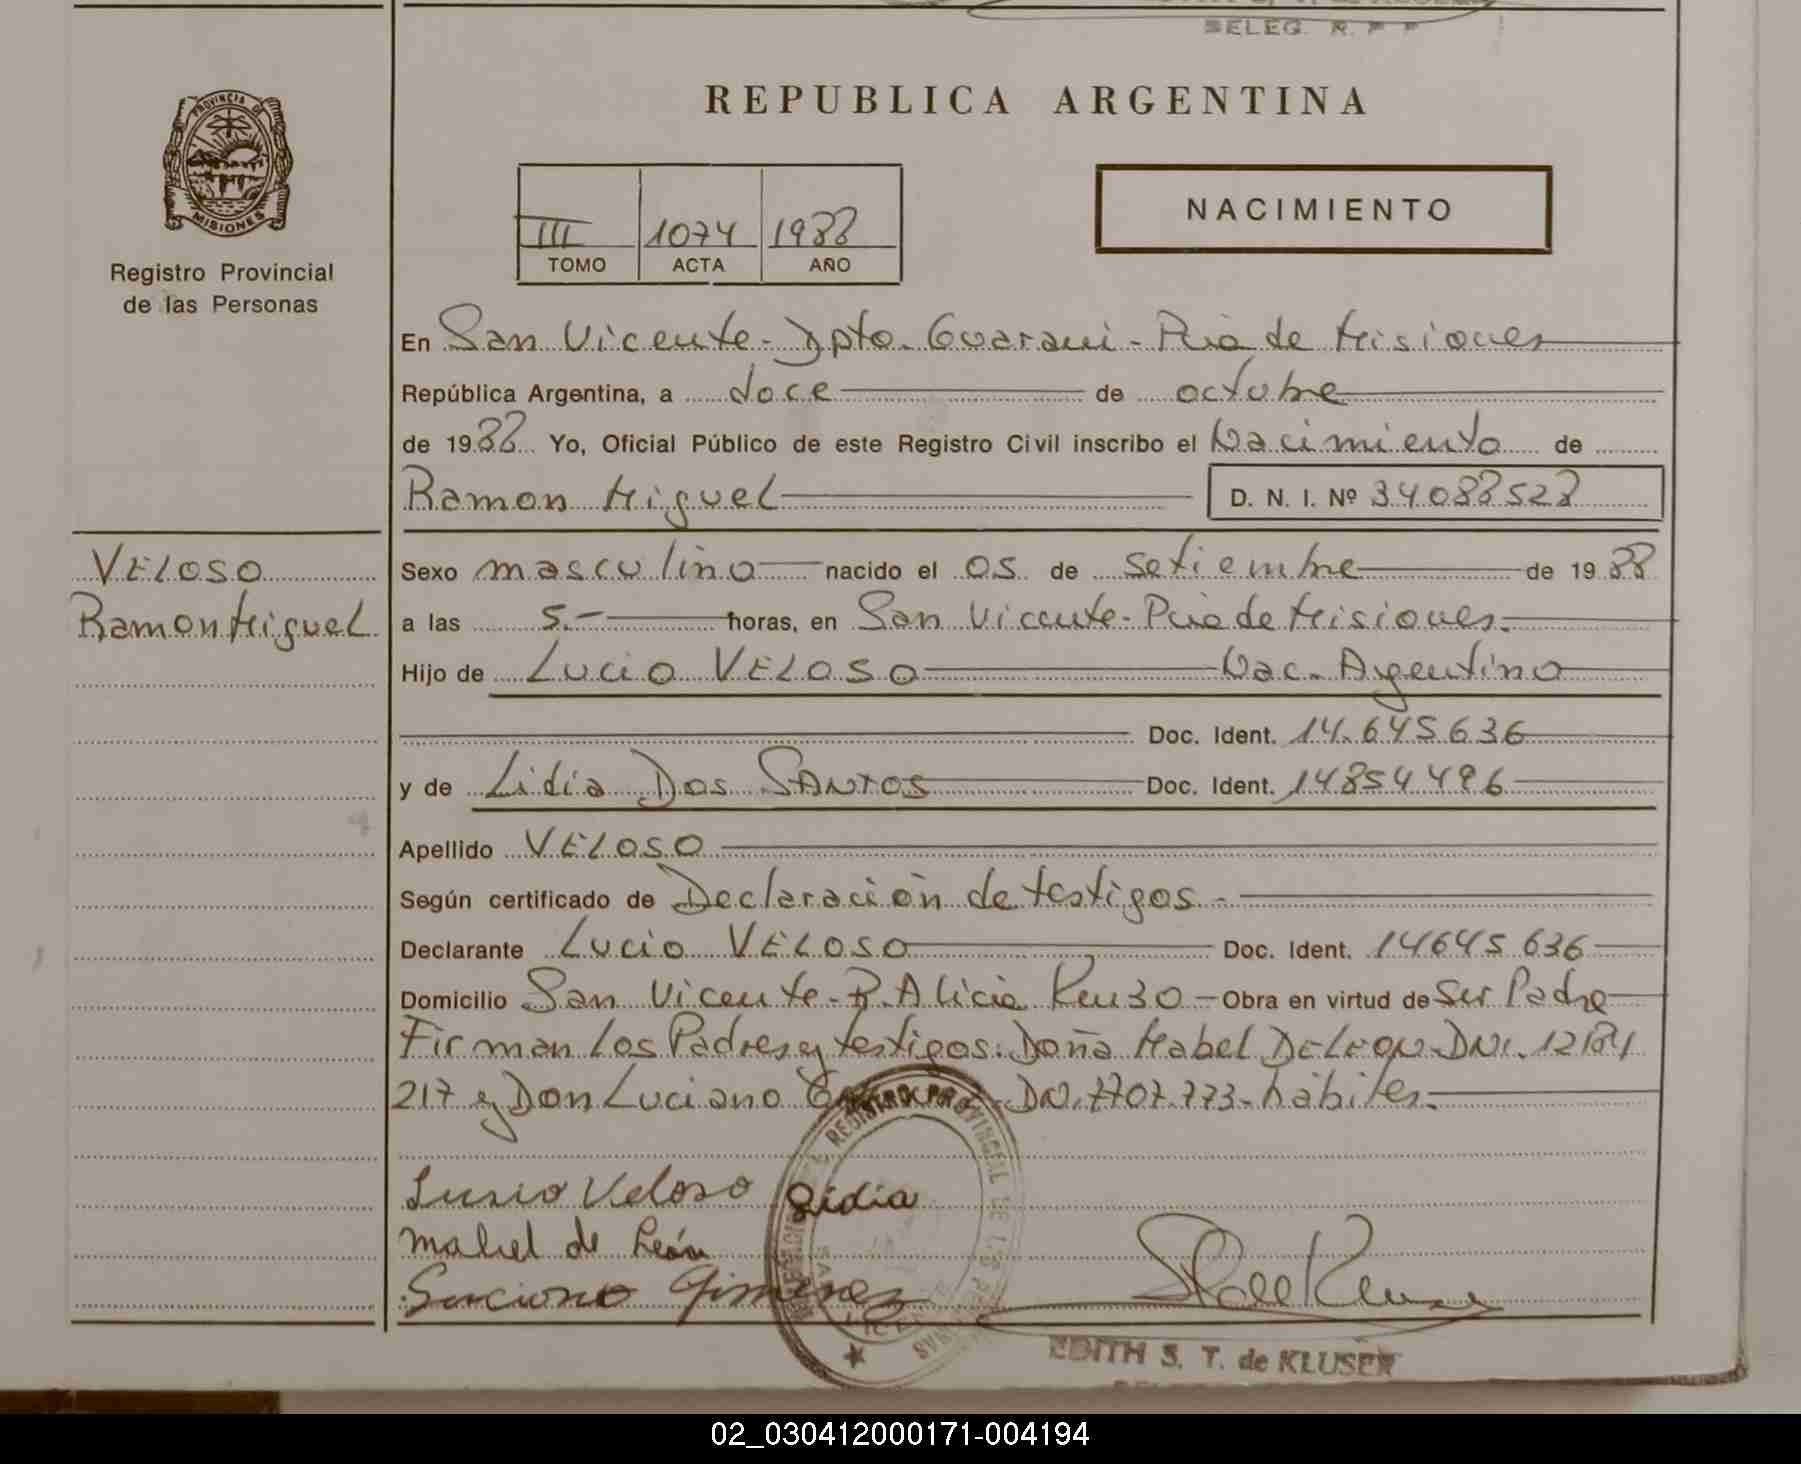 SELEG. R. P P
REPUBLICA ARGENTINA
PROVINCIA DE
MISIONES
Registro Provincial
de las Personas
III 1074 1988
TOMO ACTA AÑO
NACIMIENTO
En San Vicente - Dpto. Guarani - Pcia de Misiones
República Argentina, a doce de octubre
de 1988 Yo, Oficial Público de este Registro Civil inscribo el Nacimiento de
Ramon Miguel D. N. I. Nº 34088528
VELOSO
Ramon Miguel
Sexo masculino nacido el 05 de setiembre de 1988
a las 5.- horas, en San Vicente - Pcia de Misiones.
Hijo de Lucio VELOSO Nac. Argentino
Doc. Ident. 14.645636
y de Lidia Dos SANTOS Doc. Ident. 14854496
Apellido VELOSO
Según certificado de Declaración de testigos.-
Declarante Lucio VELOSO Doc. Ident. 14645636
Domicilio San Vicente - B. Alicia Renzo - Obra en virtud de Ser Padre
Firman Los Padres y testigos: Doña Mabel DELEON - DNI. 12
217 y Don Luciano - DN. 7707.773 - hábiles.
Lusio Veloso Lidia
Mabel de León
Luciono Gimenez
REGISTRO PROVINCIAL DE LAS
EDITH S. T. de KLUSER
02_030412000171-004194